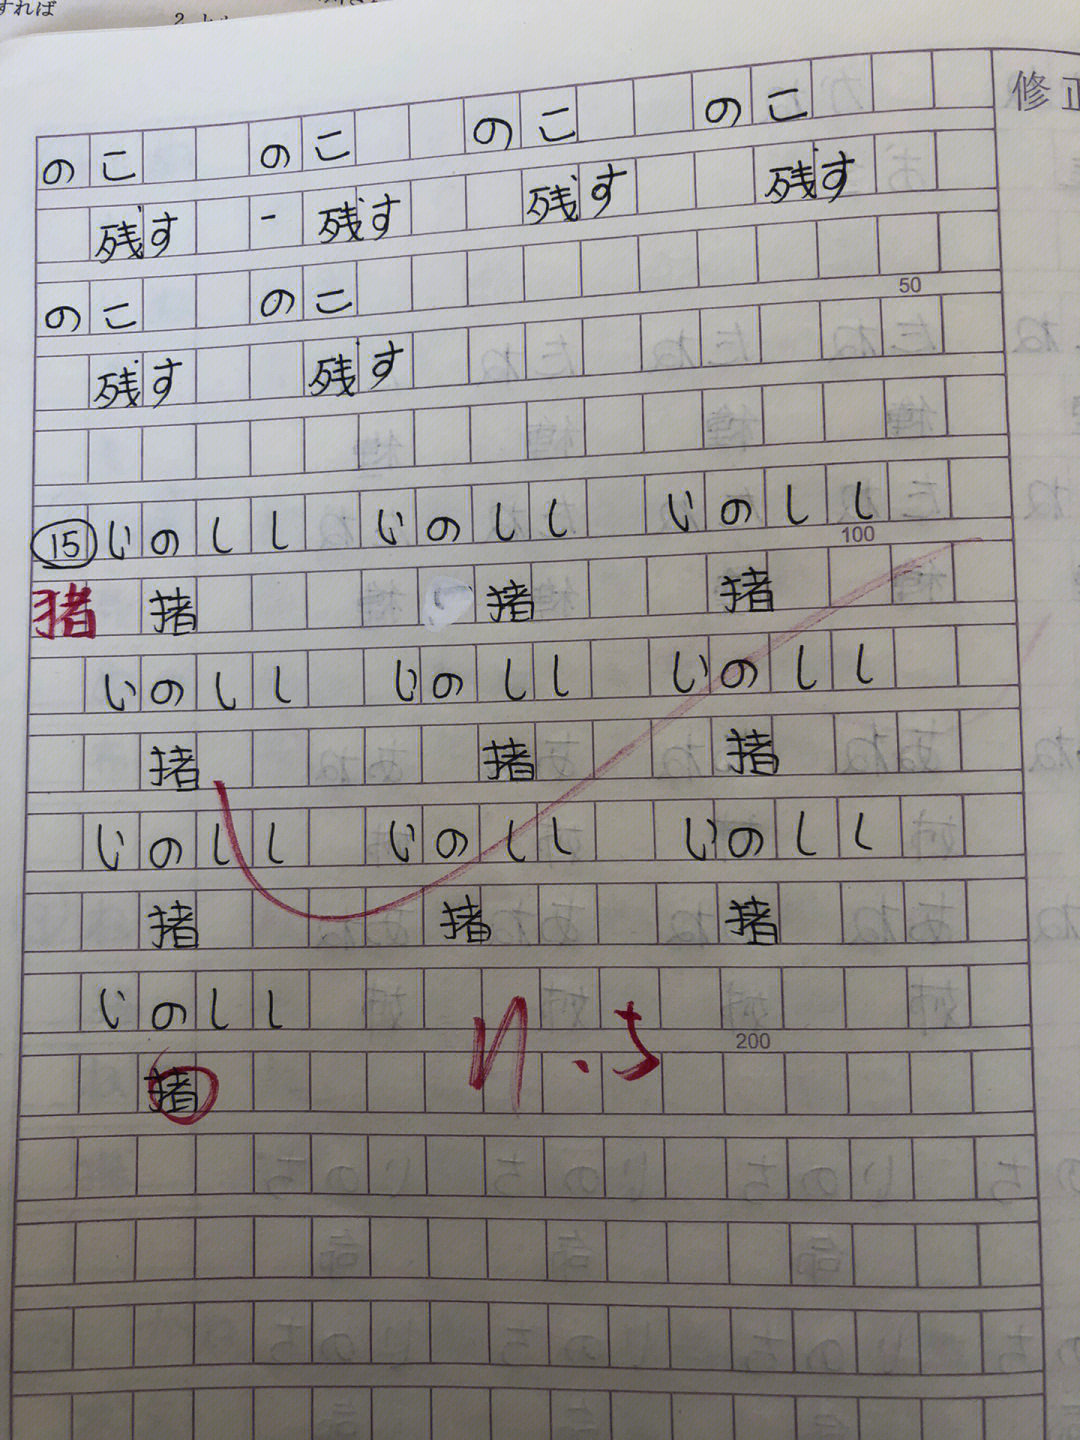 すれば
修正
のこ のこ のこ のこ
残す - 残す 残す 残す
のこ のこ
50
残す 残す
⑮ いのしし いのしし いのしし
100
猪 猪 猪 猪
いのしし いのしし いのしし
猪 猪 猪
いのしし いのしし いのしし
猪 猪 猪
いのしし
200
猪